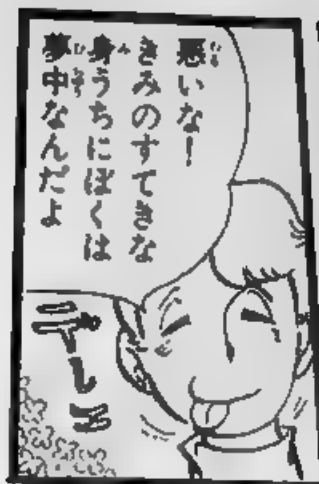 悪いな!
きみのすてきな
身うちにぼくは
夢中なんだよ